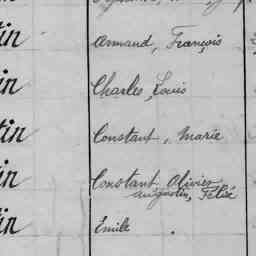 tin
Armand, François
tin
Charles, Louis
tin
Constant, Marie
tin
Constant Olivier
augustin, Félix
tin
Emile.